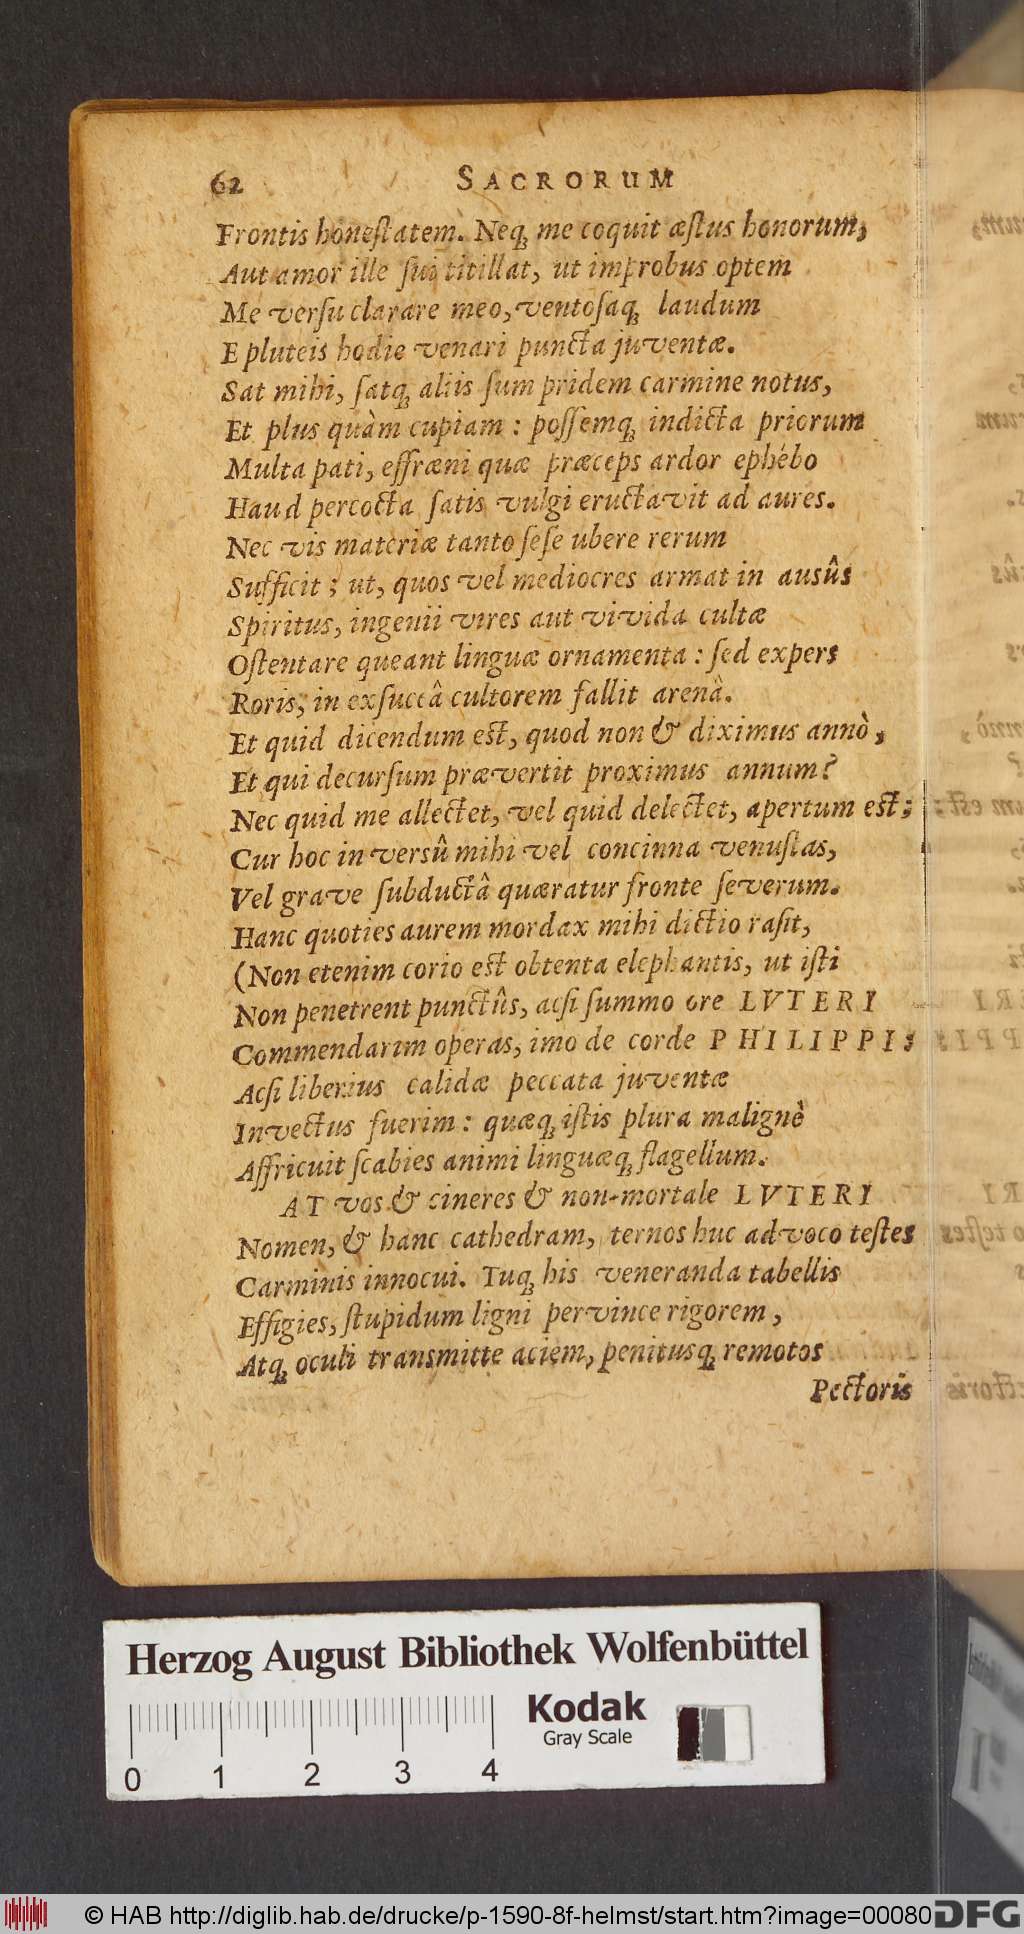 62 SACRORUM
Frontis honeſtatem. Neq; me coquit æſtus honorum,
Aut amor ille ſui titillat, ut improbus optem
Me verſu clarare meo, ventoſaq; laudum
E pluteis hodie venari puncta juventæ.
Sat mihi, ſatq; aliis ſum pridem carmine notus,
Et plus quàm cupiam: poſſemq; indicta priorum
Multa pati, effræni quæ præceps ardor ephébo
Haud percocta ſatis vulgi eructavit ad aures.
Nec vis materiæ tanto ſeſe ubere rerum
Sufficit; ut, quos vel mediocres armat in ausûs
Spiritus, ingenii vires aut vivida cultæ
Oſtentare queant linguæ ornamenta: ſed expers
Roris, in exſuccâ cultorem fallit arenâ.
Et quid dicendum eſt, quod non & diximus annò,
Et qui decurſum prævertit proximus annum?
Nec quid me allectet, vel quid delectet, apertum eſt;
Cur hoc in versû mihi vel concinna venuſtas,
Vel grave ſubductâ quæratur fronte ſeverum.
Hanc quoties aurem mordax mihi dictio raſit,
(Non etenim corio eſt obtenta elephantis, ut iſti
Non penetrent punctûs, acſi ſummo ore LVTERI
Commendarim operas, imo de corde PHILIPPI;
Acſi liberius calidæ peccata juventæ
Invectus fuerim: quæq; iſtis plura malignè
Affricuit ſcabies animi linguæq; flagellum.
AT vos & cineres & non-mortale LVTERI
Nomen, & hanc cathedram, ternos huc advoco teſtes
Carminis innocui. Tuq; his veneranda tabellis
Effigies, ſtupidum ligni pervince rigorem,
Atq; oculi transmitte aciem, penitusq; remotos
Pectoris
Herzog August Bibliothek Wolfenbüttel
Kodak
Gray Scale
0 1 2 3 4
© HAB http://diglib.hab.de/drucke/p-1590-8f-helmst/start.htm?image=00080 DFG